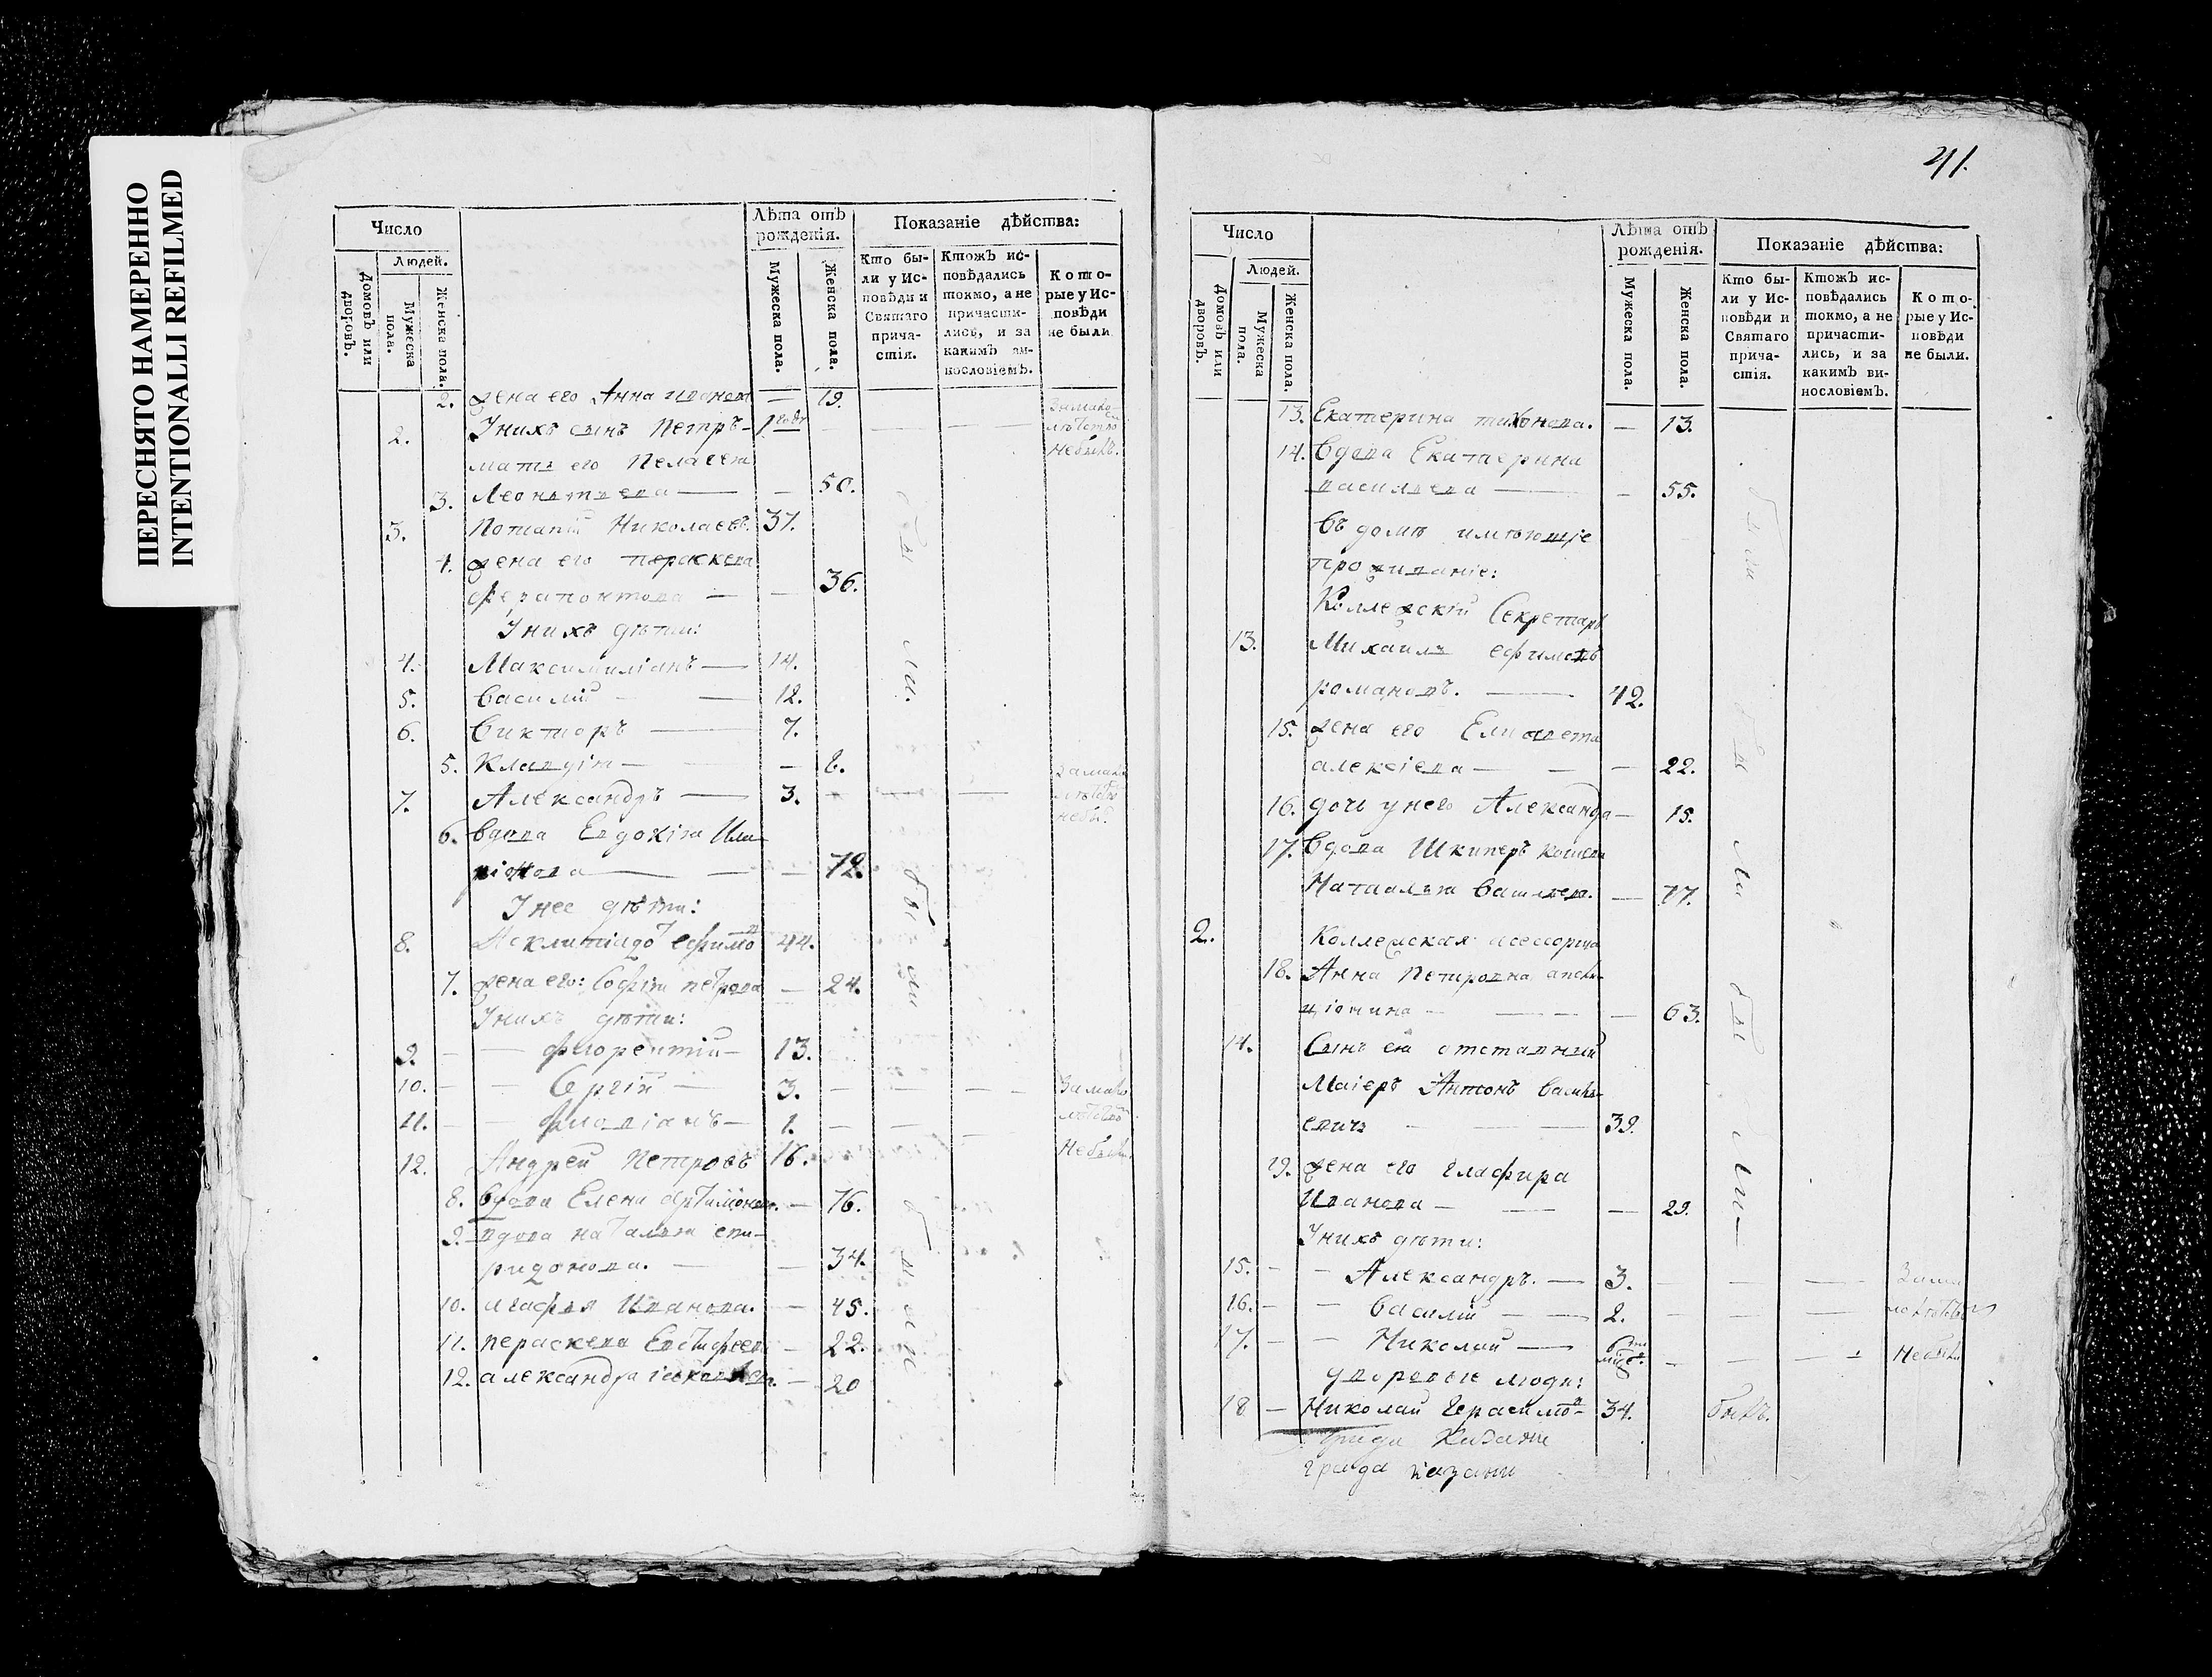 ПЕРЕСНЯТО НАМЕРЕННО
INTENTIONALLI REFILMED
Число
Людей.
Домовъ или дворовъ.
Мужеска пола.
Женска пола.
Лѣта отъ рожденія.
Мужеска пола.
Женска пола.
Показаніе дѣйства:
Кто бы-
ли у Ис-
повѣди и
Святаго
прича-
стія.
Ктожъ ис-
повѣдались
токмо, а не
причасти-
лись, и за
какимъ ви-
нословіемъ.
Кото-
рые у Ис-
повѣди
не были.
2. жена его Анна иванова — 19.
2. У нихъ сынъ Петръ — 1 годъ — — За мало-
лѣтство
не былъ.
мать его Пелагея
3. Леонтьева — — 50.
3. Потапій Николаевъ. 37.
4. жена его параскева
ферапонтова — — 36.
У нихъ дѣти:
4. Максимиліанъ — 14.
5. Василій — 12.
6. Викторъ — 7.
5. Клавдія — — 8.
7. Александръ — 3. — — —
6. Вдова Евдокія Ила-
ріонова — — 72.
У нее дѣти:
8. Асклипіадотъ ефимовъ 44.
7. жена его: Софія петрова — 24.
У нихъ дѣти:
9. — — флорентій — 13.
10. — — Сергій — 3. — — — За мало
11. — — флавіанъ — 1. — — — лѣтство
12. Андрей Петровъ 16. Не были.
8. Вдова Елена артамонова. — 76.
9. вдова наталья спи-
ридонова. — — 34.
10. агафья Иванова. — 45.
11. параскева Евстафьева — 22.
12. александра — 20
были
были
были
41.
Число
Людей.
Домовъ или дворовъ.
Мужеска пола.
Женска пола.
Лѣта отъ рожденія.
Мужеска пола.
Женска пола.
Показаніе дѣйства:
Кто бы-
ли у Ис-
повѣди и
Святаго
прича-
стія.
Ктожъ ис-
повѣдались
токмо, а не
причасти-
лись, и за
какимъ ви-
нословіемъ.
Кото-
рые у Ис-
повѣди
не были.
13. Екатерина тихонова. — 13.
14. Вдова Екатерина
васильева — — 55.
Въ домѣ имѣющіе
проживаніе:
Коллежскій Секретарь
13. Михаилъ ефимовъ
романовъ. — 42.
15. жена его Елисавета
алексіева — — — 22.
16. дочь у него Александра — 15.
17. Вдова Шкиперъ
Наталья Васильева. — 77.
2. Коллежская ассесорша
18. Анна Петровна
ціонина — — — 63.
14. Сынъ ея отставный
Маіеръ Антонъ Василь-
евичъ — — 39.
19. жена его глафира
Иванова — — — 29.
У нихъ дѣти:
15. — — Александръ. — 3. — — — За ма
16. — — Василій — 2. — — — лолѣтство
17. — — Николай — 6ти мѣс. — — — Не были
дворовые люди:
18 — Николай Герасимовъ — 34. былъ.
града Казани
града казани
были
были
были